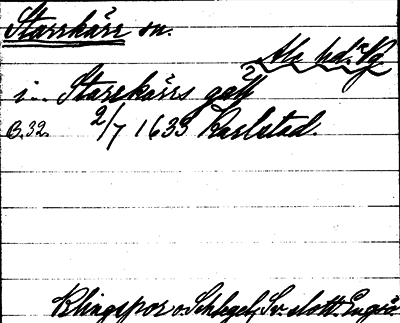 Starrkärr sn.
Ale hd. Vg
i.. Starrkärrs gäll
B.32. 2/7 1633 Karlstad.
Klingspor o. Schlegel, Sv. slott. Engsö